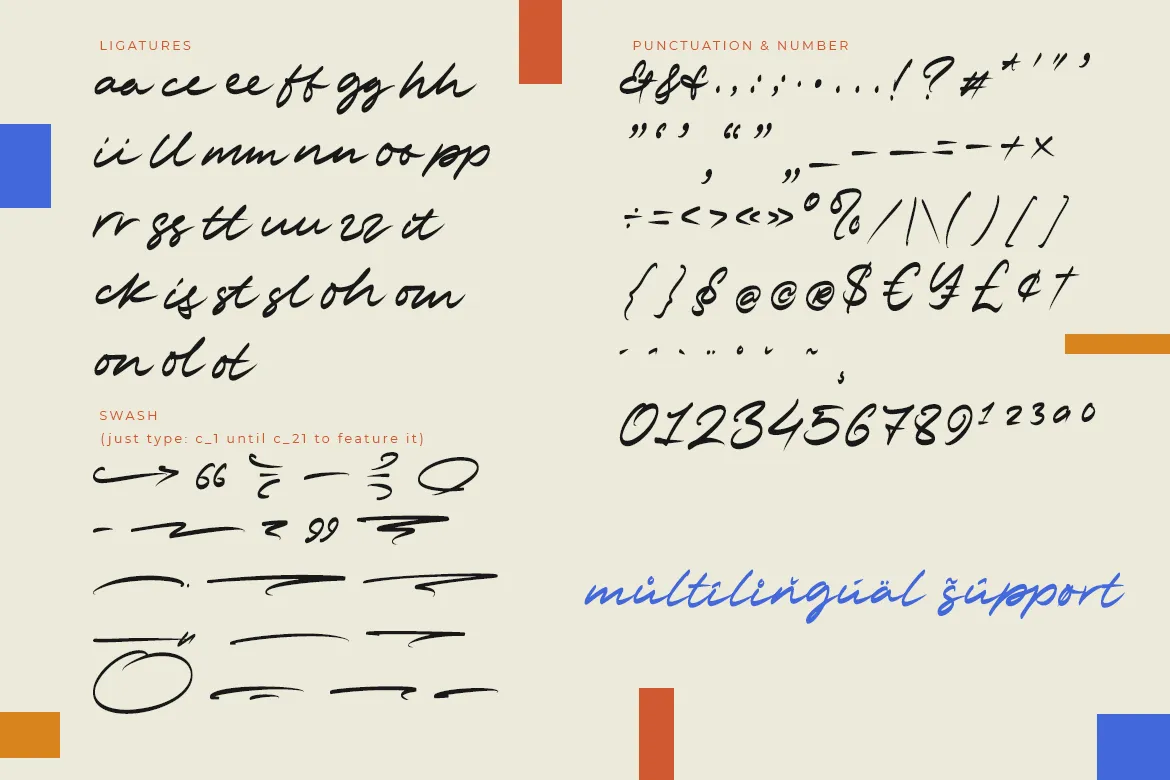 LIGATURES
aa ce ee ff gg hh
ii ll mm nn oo pp
rr ss tt uu zz it
ck is st sl oh om
on ol ot
SWASH
(just type: c_1 until c_21 to feature it)
PUNCTUATION & NUMBER
& & & . , : ; · • . . . ! ? # * ' " ’
” ‘ ’ ‚ “ ” „ _ - – — = − + ×
÷ = < > « » ° % / | \ ( ) [ ]
{ } § @ © ® $ € ¥ £ ¢ †
´ ˆ ` ¨ ˚ ˇ ˜ ¸
0123456789 ¹ ² ³ ª º
můltíliňgúäl šûpport